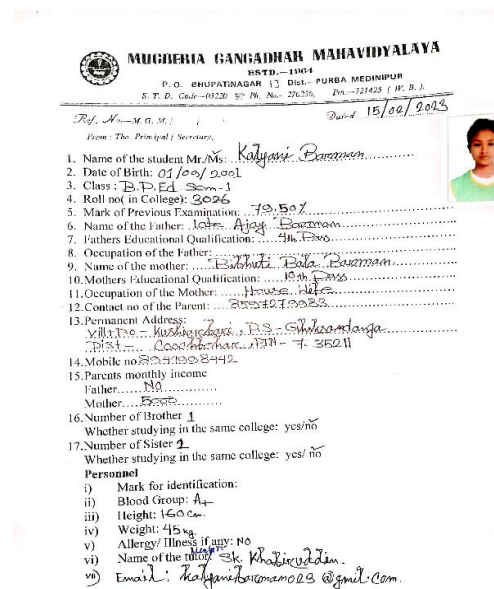 MUGBERIA GANGADHAR MAHAVIDYALAYA
ESTD.—1964
P. O. BHUPATINAGAR Dist.- PURBA MEDINIPUR
S. T. D. Code—03220 Ph. No.- 276236, Pin.—721425 ( W. B. ).
Ref. No.—M. G. M. / / Dated 15/02/2023
From : The Principal / Secretary,
1. Name of the student Mr./Ms: Kalyani Barman
2. Date of Birth: 01/09/2001
3. Class : B.P.Ed Sem-1
4. Roll no( in College): 3026
5. Mark of Previous Examination: 79.50%
6. Name of the Father: Late Ajay Barman
7. Fathers Educational Qualification: 4th Pass
8. Occupation of the Father:
9. Name of the mother: Bibhuti Bala Barman
10. Mothers Educational Qualification: Pass
11. Occupation of the Mother: House
12. Contact no of the Parent:
13. Permanent Address:
Vill+Po- P.S-
Dist- PIN- 735211
14. Mobile no
15. Parents monthly income
Father NO
Mother 5000
16. Number of Brother 1
Whether studying in the same college: yes/no
17. Number of Sister
Whether studying in the same college: yes/ no
Personnel
i) Mark for identification:
ii) Blood Group: A+
iii) Height: 160 Cm.
iv) Weight: 45 kg.
v) Allergy/ Illness if any: NO
Mentor
vi) Name of the tutor: Sk. Khabiruddin.
vii) Email : kalyanibarman023 @gmil.com.